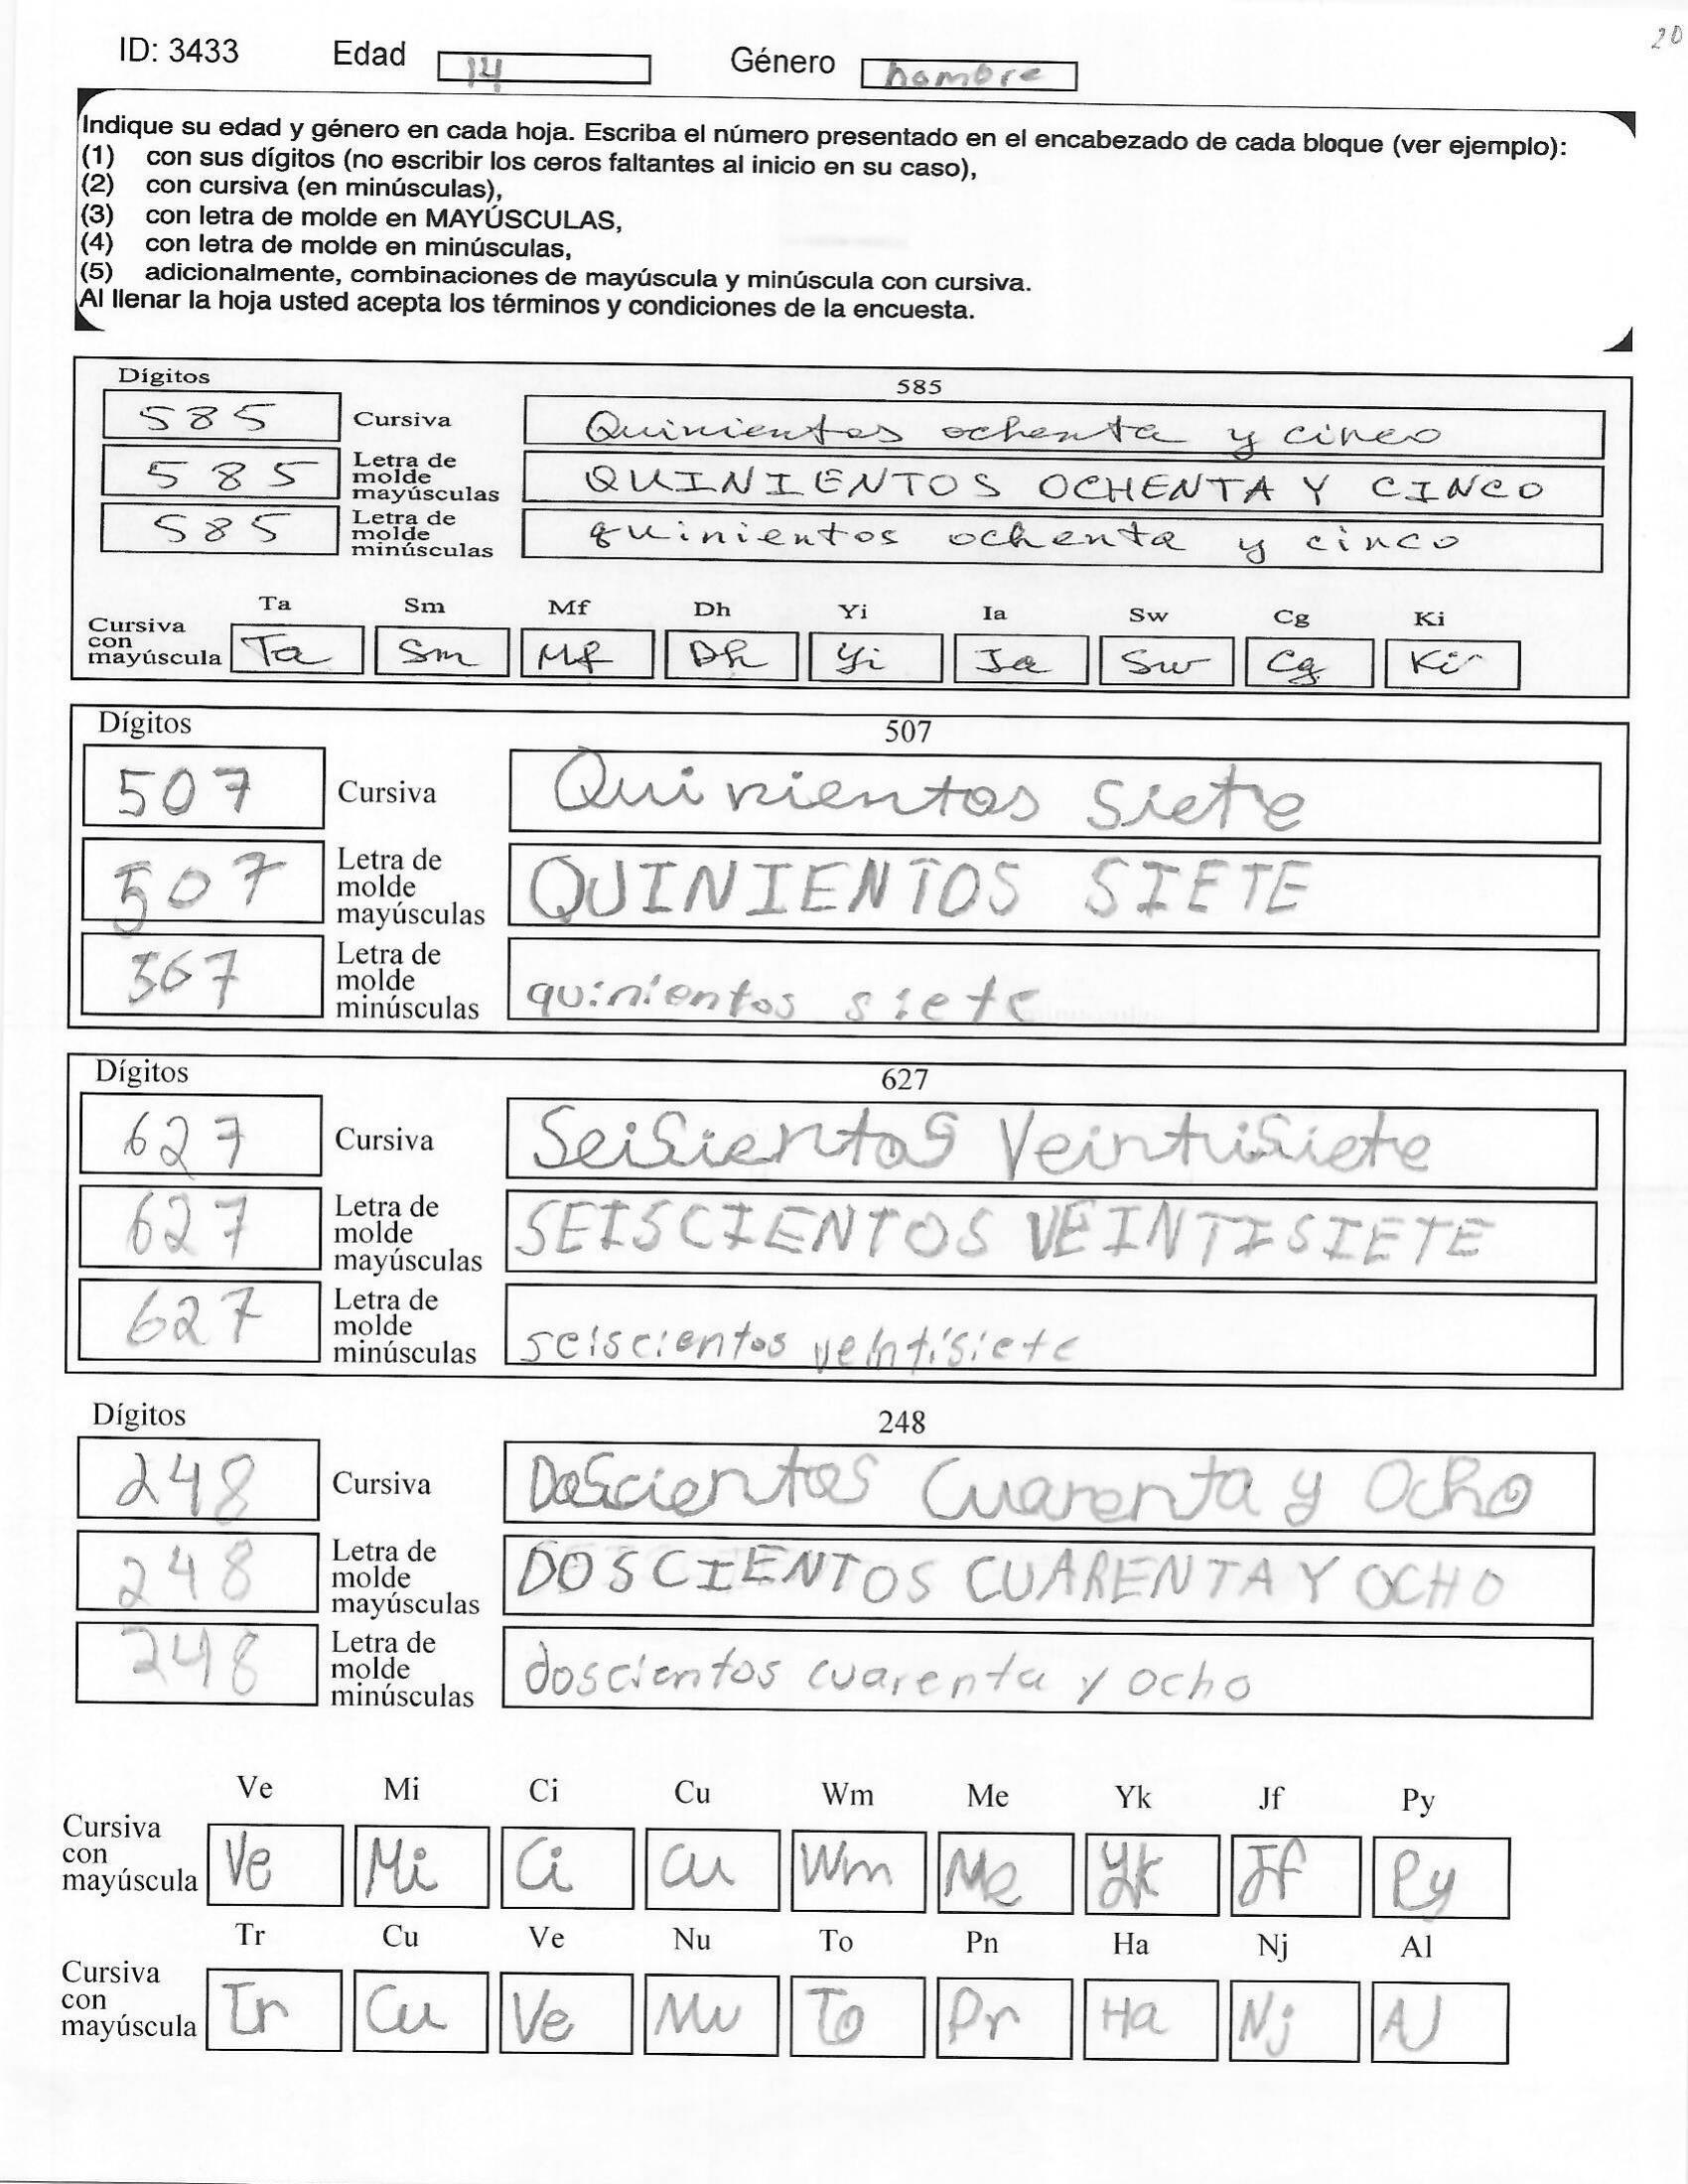 20
ID: 3433 Edad 14 Género hombre
Indique su edad y género en cada hoja. Escriba el número presentado en el encabezado de cada bloque (ver ejemplo):
(1) con sus dígitos (no escribir los ceros faltantes al inicio en su caso),
(2) con cursiva (en minúsculas),
(3) con letra de molde en MAYÚSCULAS,
(4) con letra de molde en minúsculas,
(5) adicionalmente, combinaciones de mayúscula y minúscula con cursiva.
Al llenar la hoja usted acepta los términos y condiciones de la encuesta.
Dígitos 585
585 Cursiva Quinientos ochenta y cinco
585 Letra de molde mayúsculas QUINIENTOS OCHENTA Y CINCO
585 Letra de molde minúsculas quinientos ochenta y cinco
Ta Sm Mf Dh Yi Ia Sw Cg Ki
Cursiva con mayúscula Ta Sm Mf Dh Yi Ia Sw Cg Ki
Dígitos 507
507 Cursiva Quinientos Siete
507 Letra de molde mayúsculas QUINIENTOS SIETE
507 Letra de molde minúsculas quinientos siete
Dígitos 627
627 Cursiva SeiSientos VeintiSiete
627 Letra de molde mayúsculas SEISCIENTOS VEINTISIETE
627 Letra de molde minúsculas seiscientos veintisiete
Dígitos 248
248 Cursiva DoScientos Cuarenta y Ocho
248 Letra de molde mayúsculas DOSCIENTOS CUARENTA Y OCHO
248 Letra de molde minúsculas doscientos cuarenta y ocho
Ve Mi Ci Cu Wm Me Yk Jf Py
Cursiva con mayúscula Ve Mi Ci Cu Wm Me Yk Jf Py
Tr Cu Ve Nu To Pn Ha Nj Al
Cursiva con mayúscula Tr Cu Ve Nu To Pr Ha Nj Al